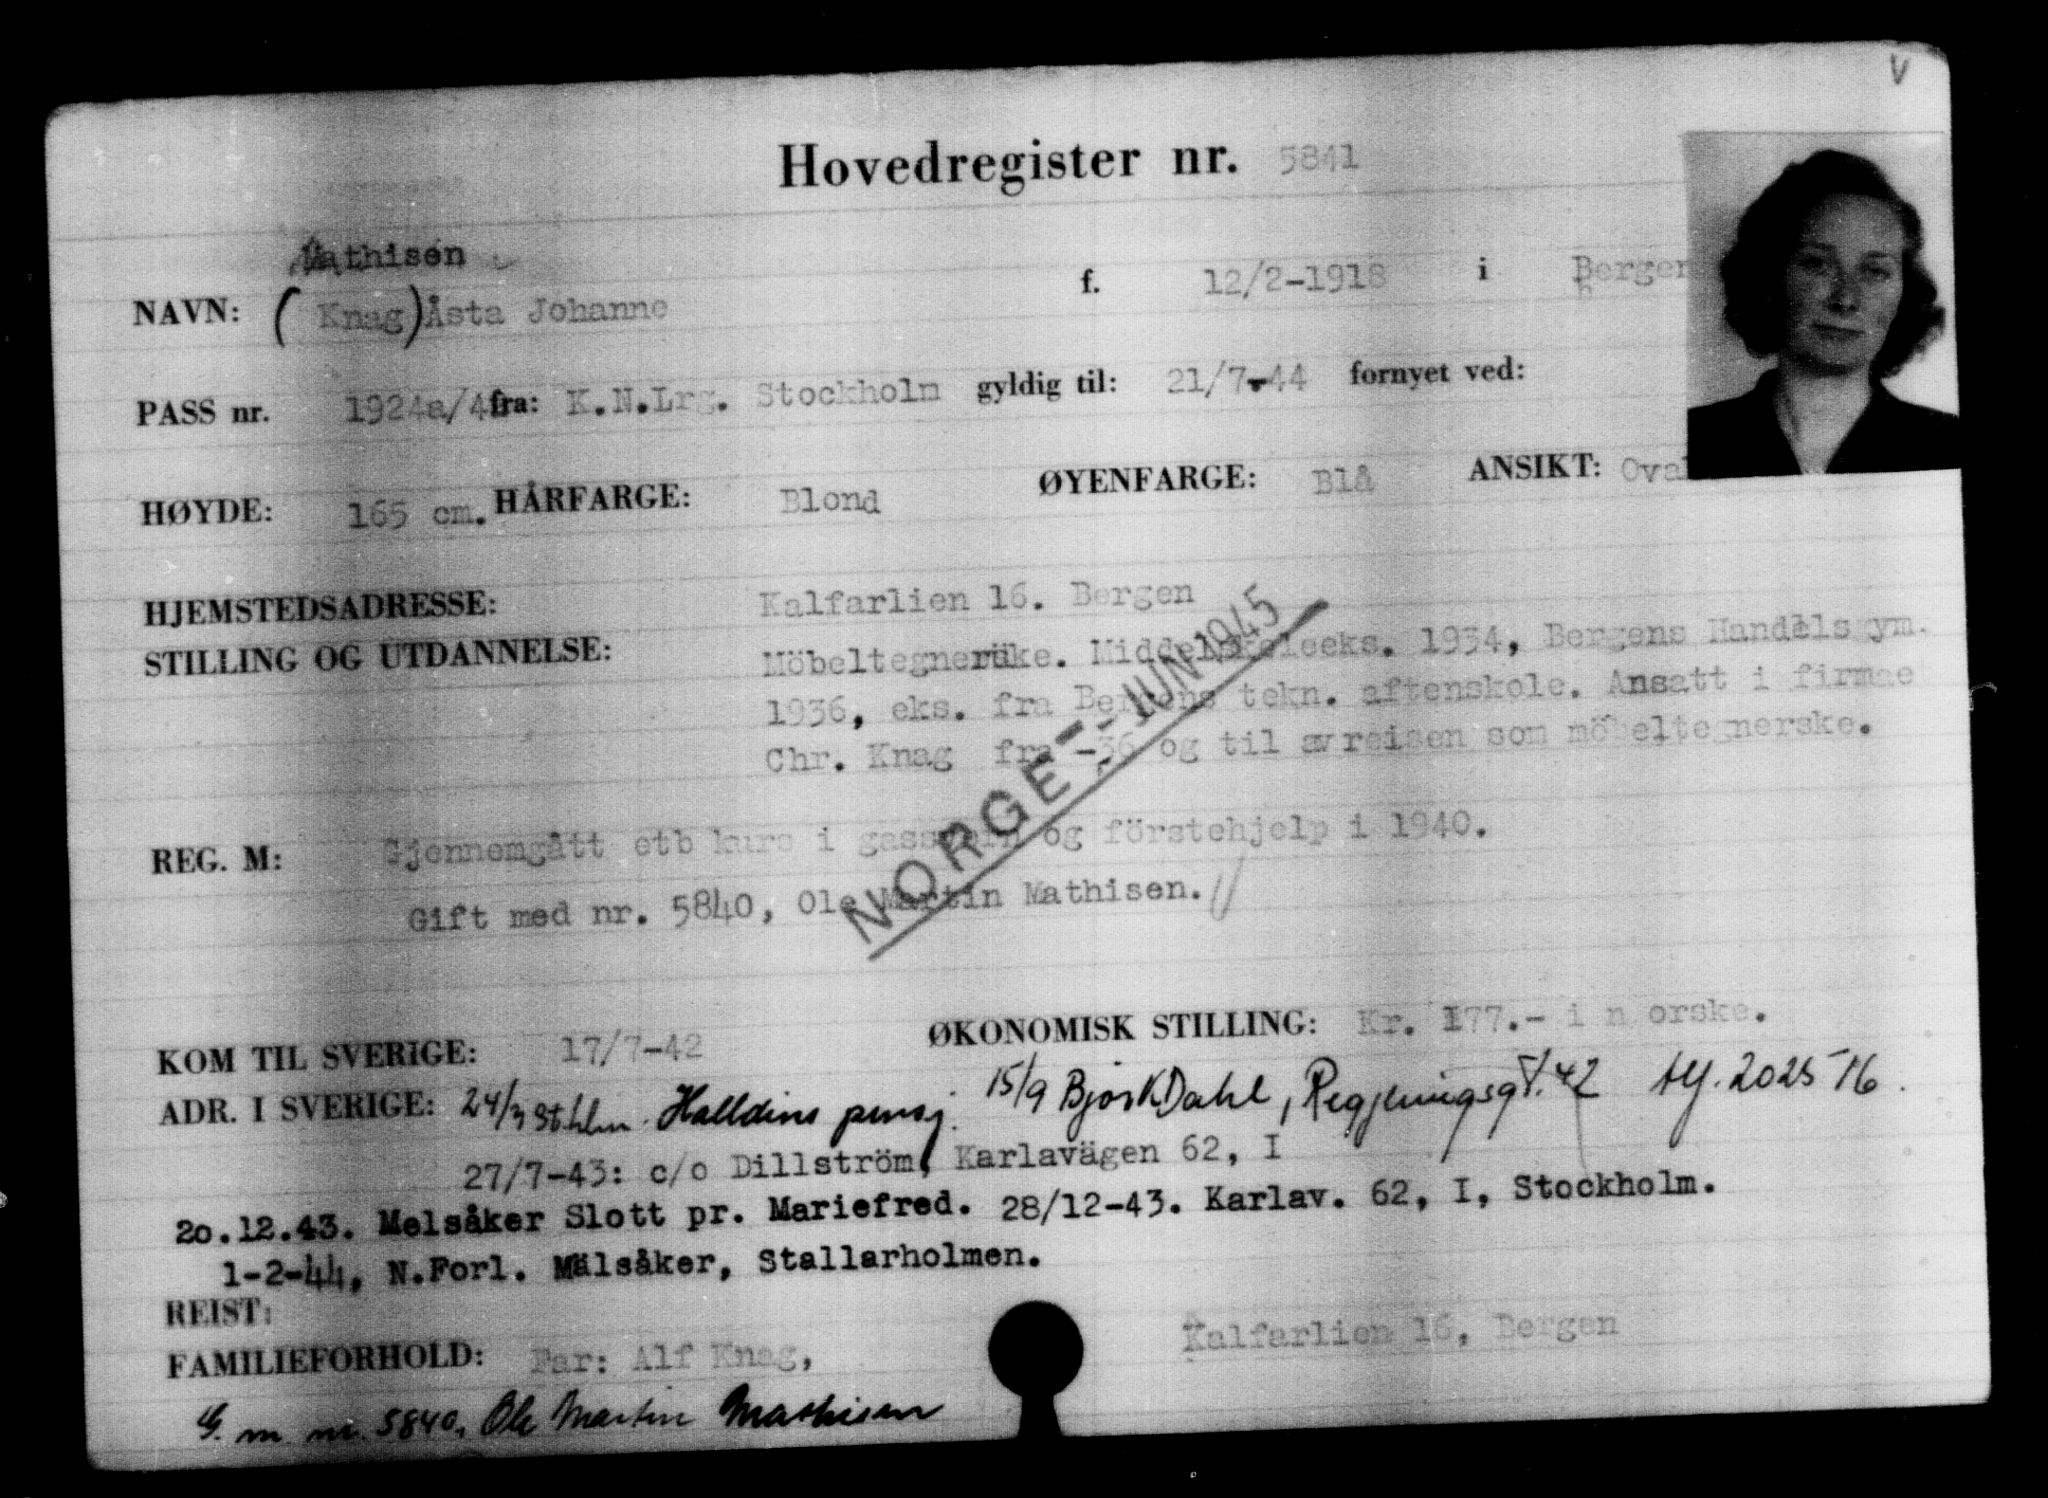 V
Hovedregister nr. 5841
Mathisen
NAVN: (Knag) Åsta Johanne f. 12/2-1918 i Bergen
PASS nr. 1924a/43 fra: K.N.Lrg. Stockholm gyldig til: 21/7-44 fornyet ved:
HØYDE: 165 cm. HÅRFARGE: Blond ØYENFARGE: Blå ANSIKT: Oval
HJEMSTEDSADRESSE: Kalfarlien 16. Bergen
STILLING OG UTDANNELSE: Möbeltegnerske. Middelskoleeks. 1934, Bergens Handelsgym.
1936, eks. fra Bergens tekn. aftenskole. Ansatt i firmae
Chr. Knag fra -36 og til avreisen som möbeltegnerske.
NORGE - JUNI 1945
REG. M: Gjennemgått etb kurs i gassvern og förstehjelp i 1940.
Gift med nr. 5840, Ole Martin Mathisen.
KOM TIL SVERIGE: 17/7-42 ØKONOMISK STILLING: Kr. 177.- i n orske.
ADR. I SVERIGE: 24/7 Sthlm. Halldins pensj. 15/9 Björk Dahl, Regjeringsgt. 42 tlf. 2025 76.
27/7-43: c/o Dillström, Karlavägen 62, I
20.12.43. Melsåker Slott pr. Mariefred. 28/12-43. Karlav. 62, I, Stockholm.
1-2-44, N.Forl. Mälsåker, Stallarholmen.
REIST:
FAMILIEFORHOLD: Far: Alf Knag, Kalfarlien 16, Bergen
G. m. nr. 5840, Ole Martin Mathisen